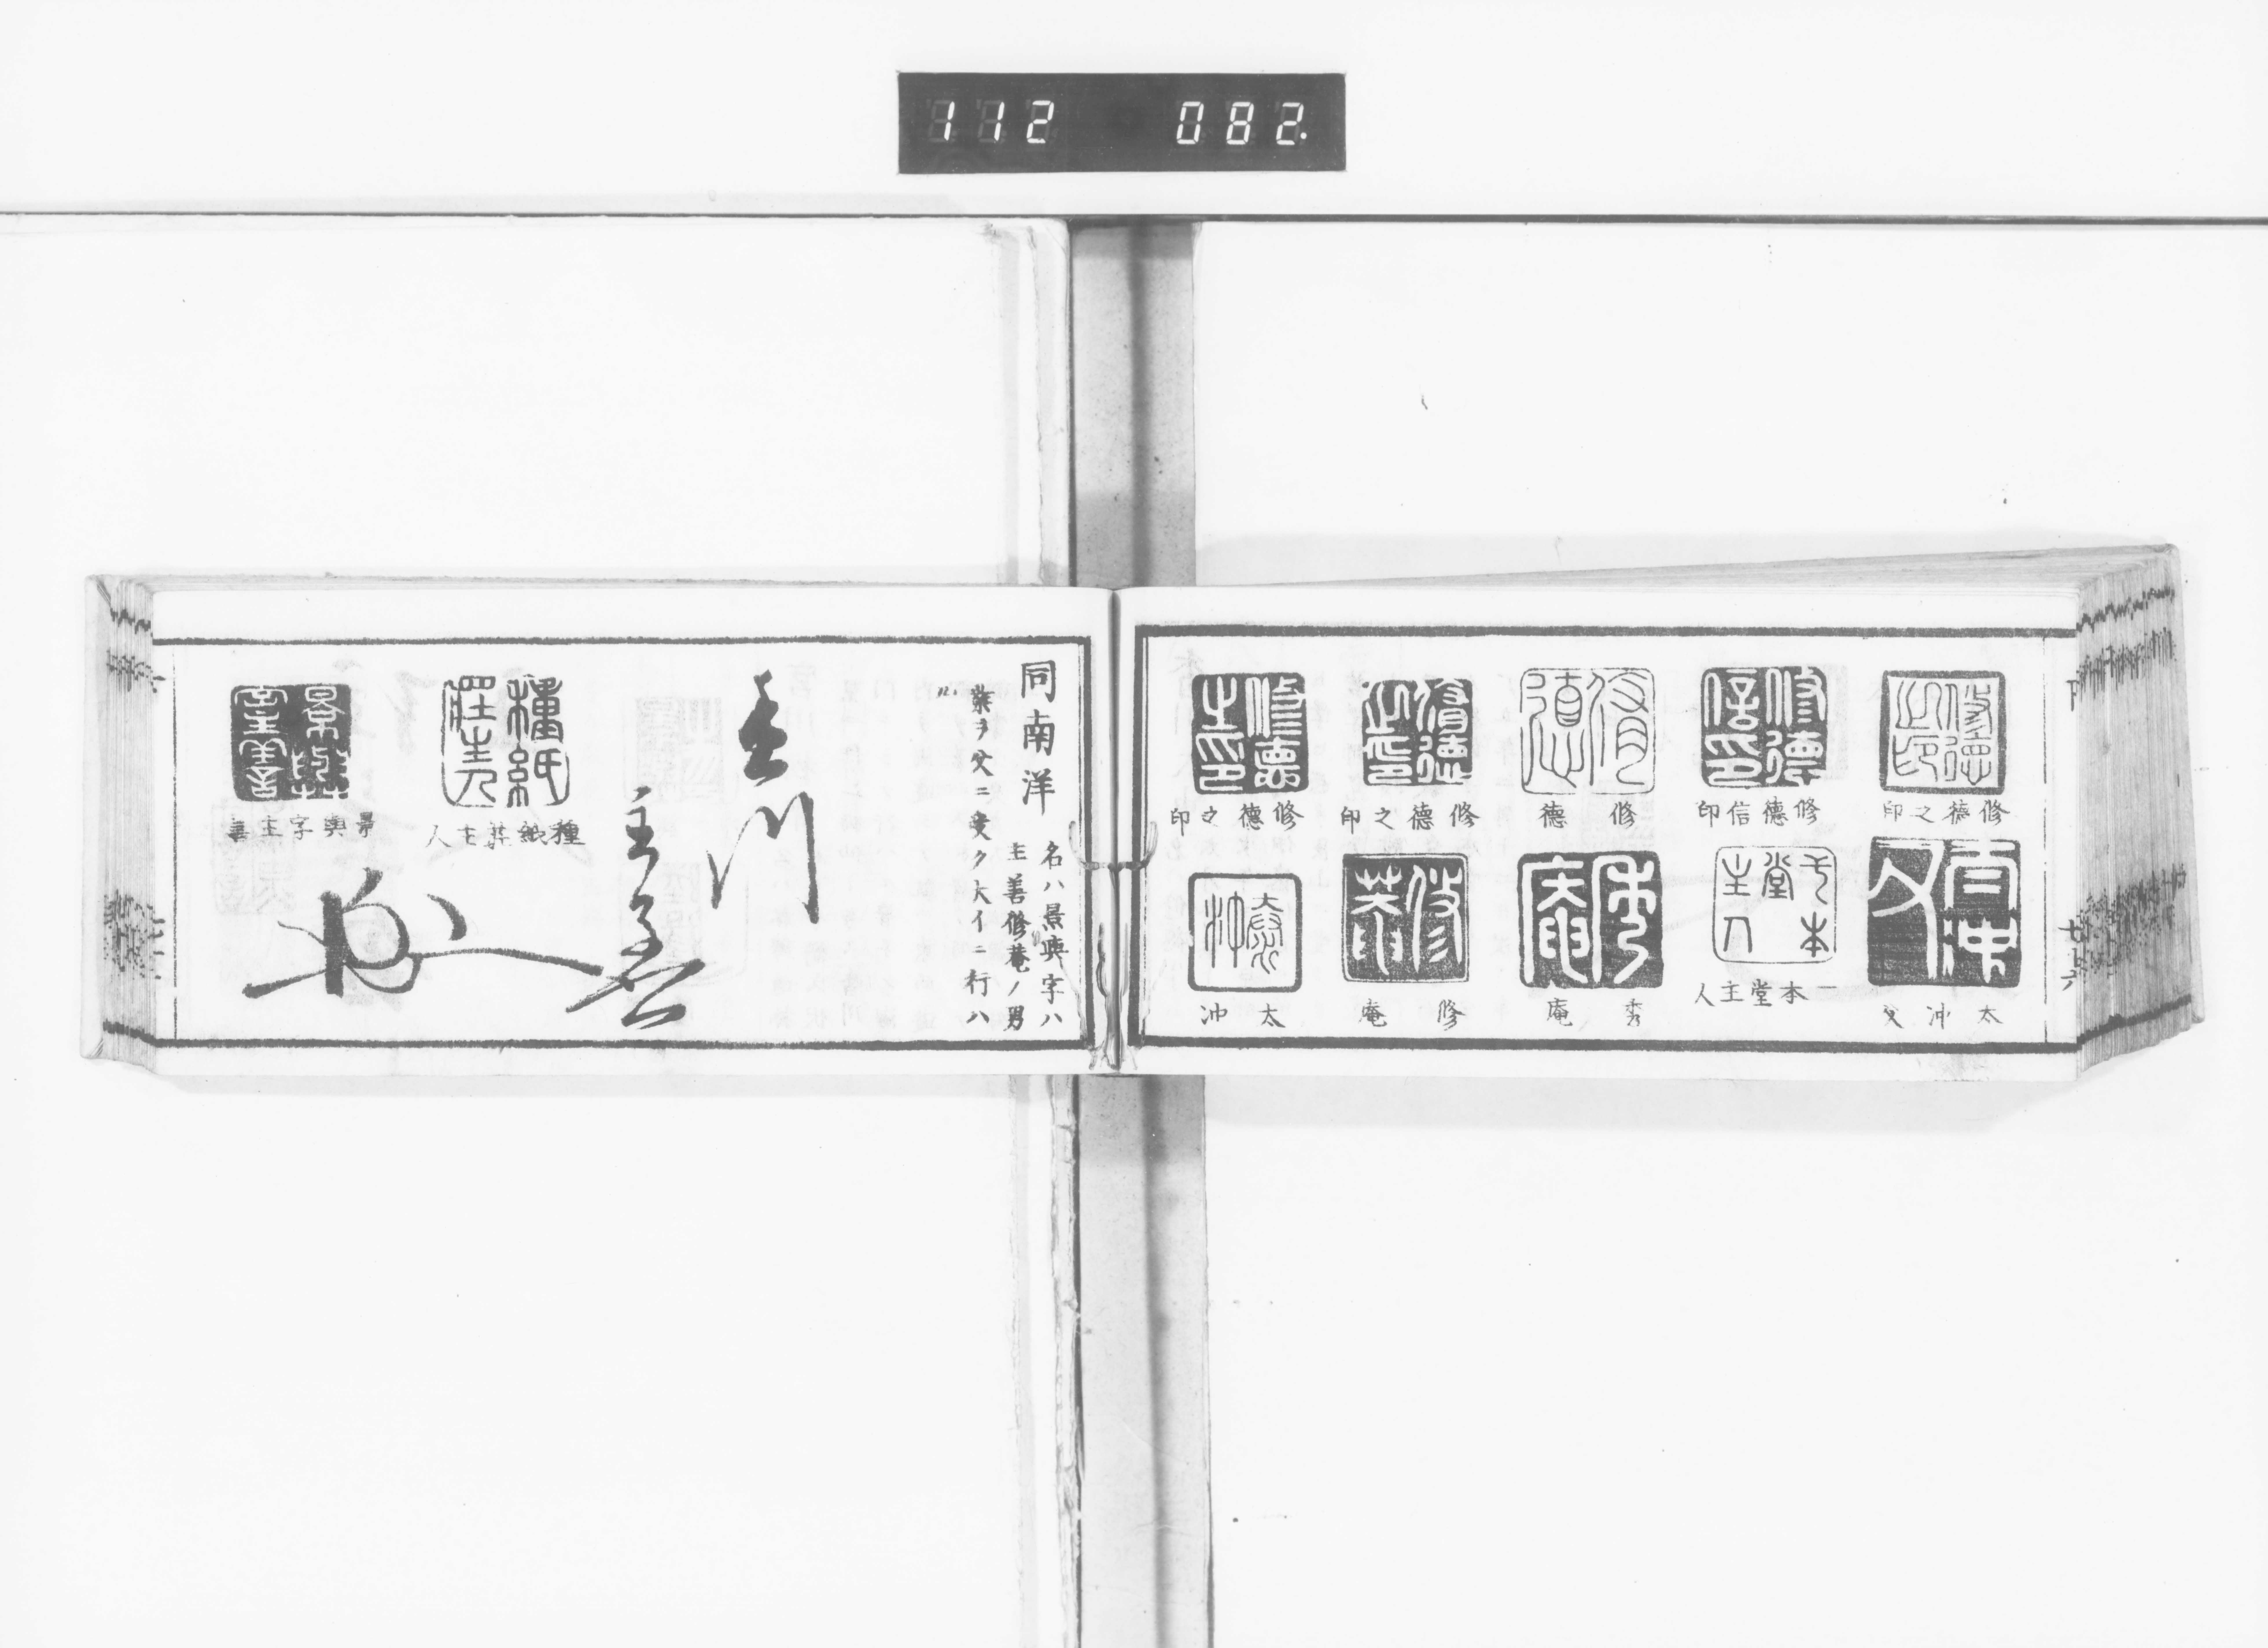 112 082.
修德之印
修德信印
修德
修德之印
修德之印
太沖父
一本堂主人
秀庵
修庵
太沖
同南洋
名ハ景與字ハ
主善修菴ノ男
業ヲ父ニ受ク大イニ行ハ
ル
種紙莊主人
景與字主善
主善